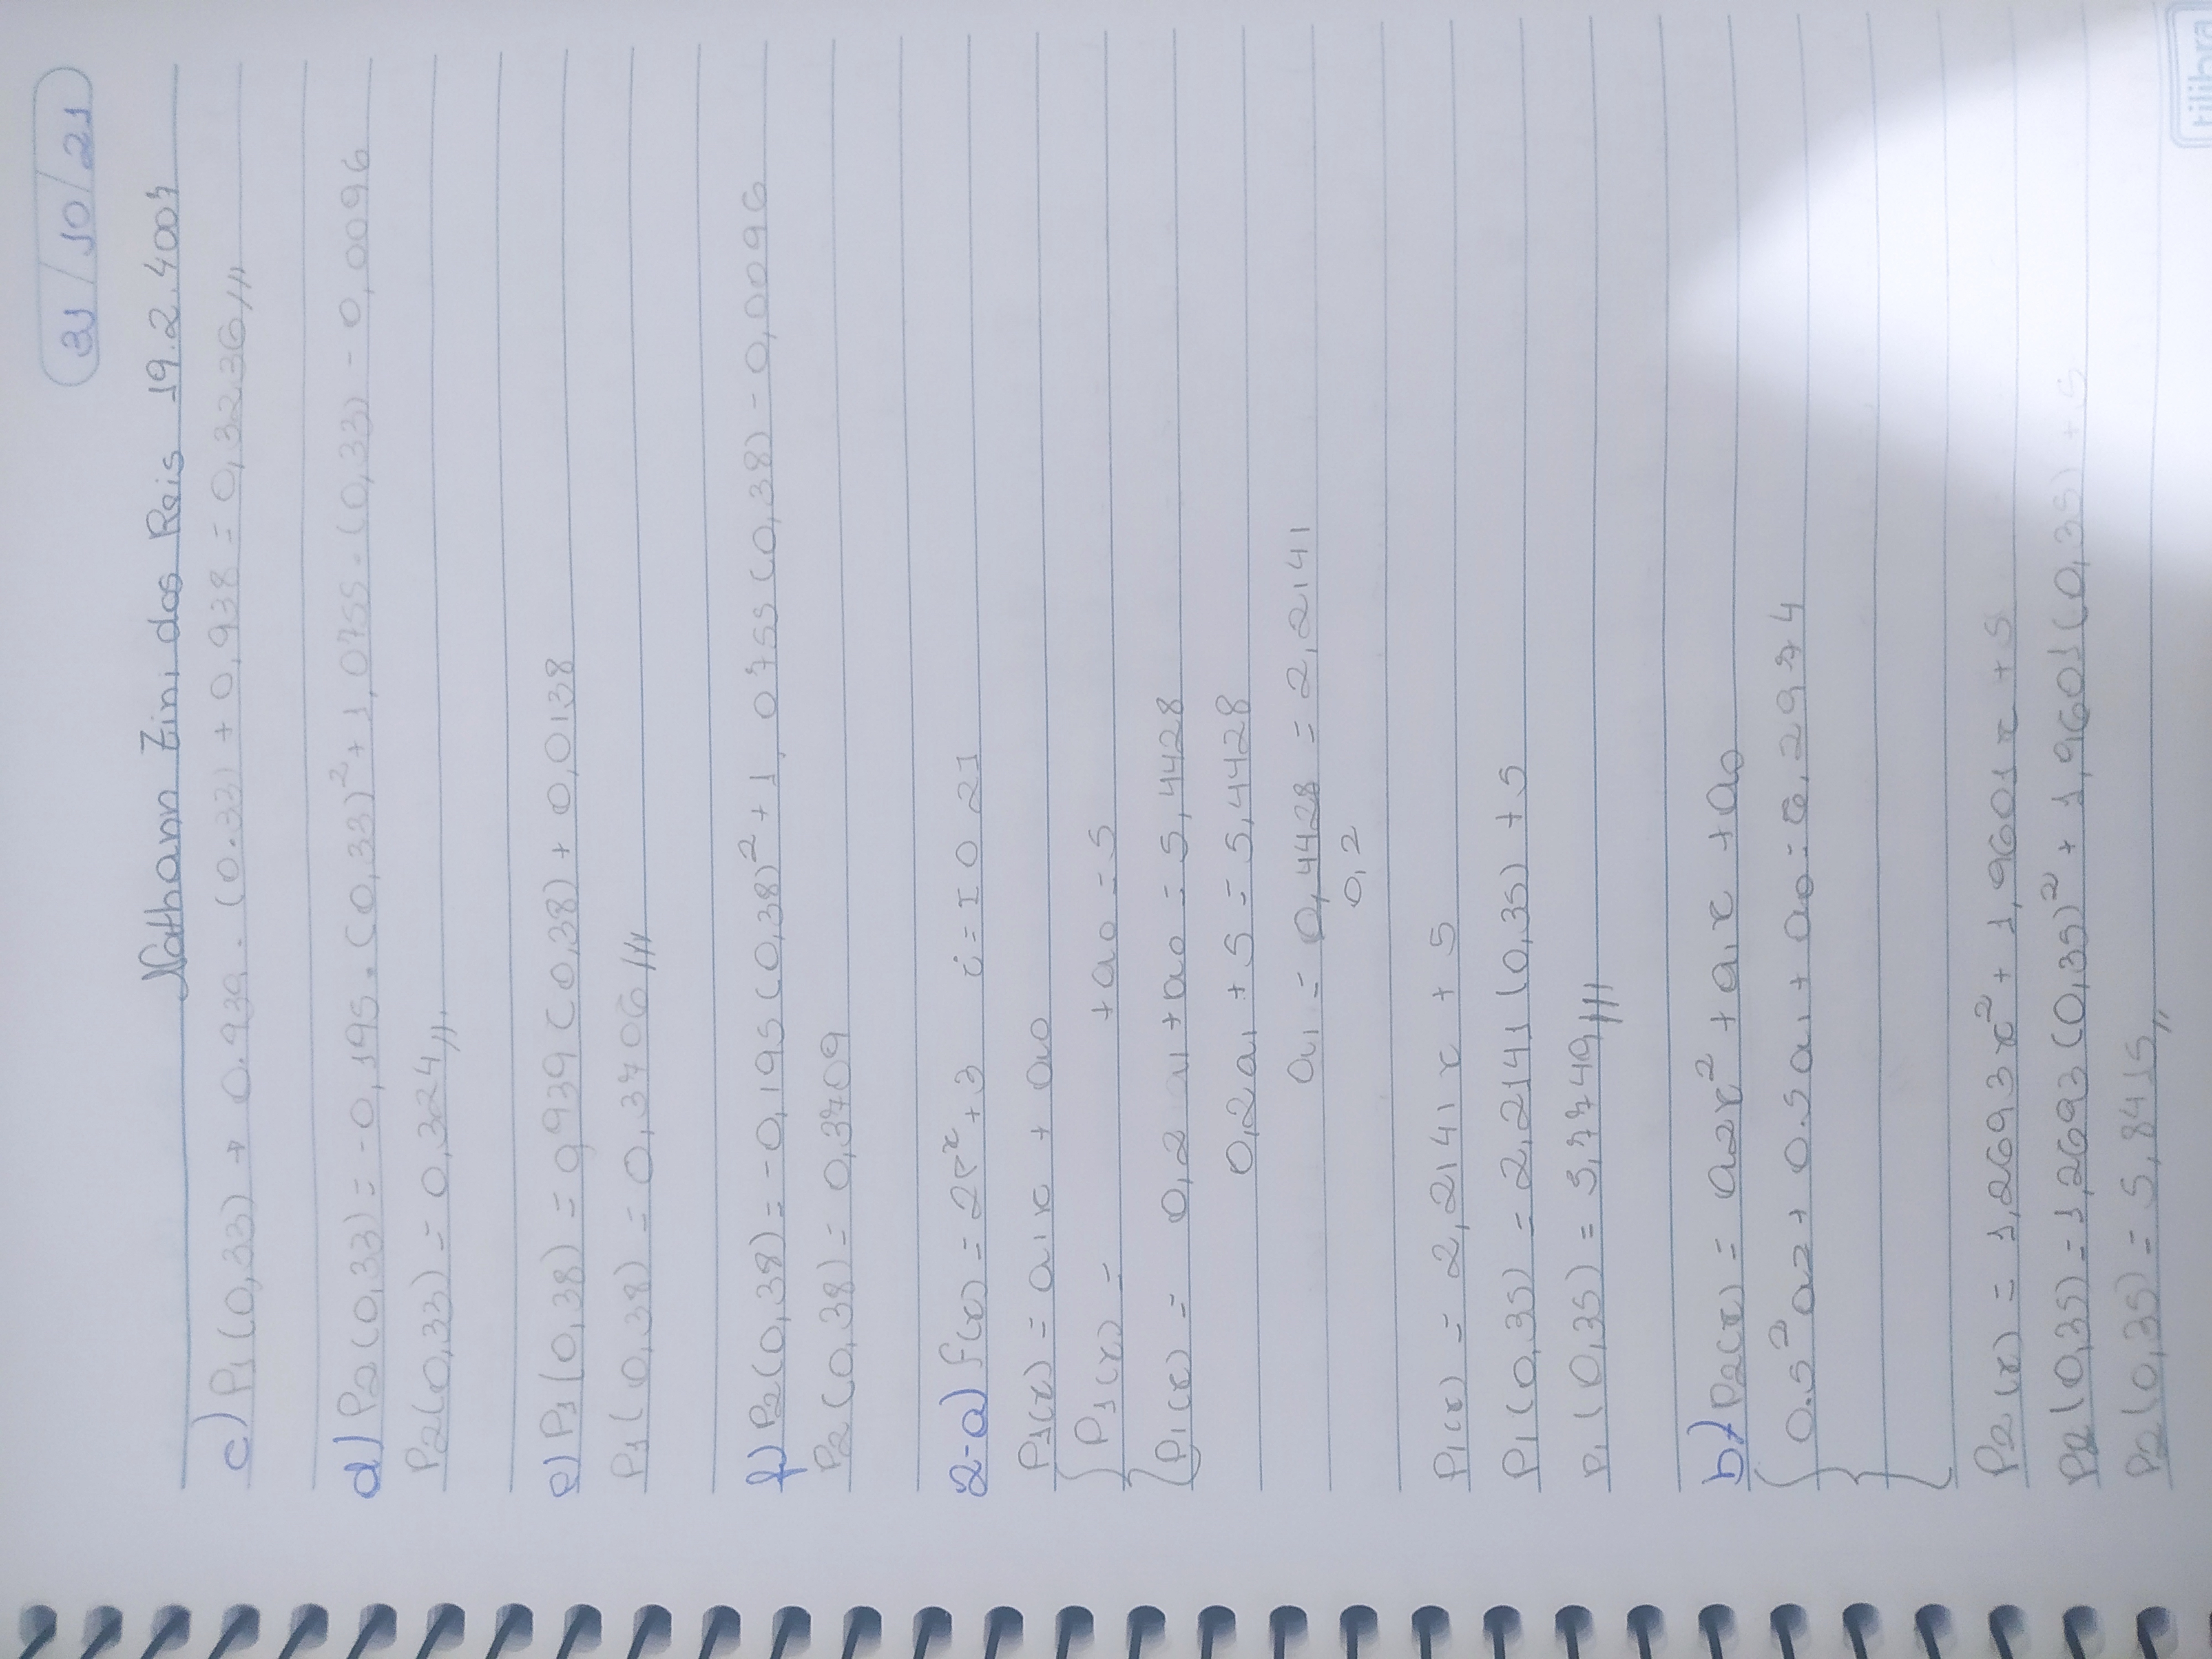 31/10/21
Nathann Zini dos Reis 19.2.4007
c) P1(0,33) → 0.939 . (0.33) + 0,938 = 0,3236///
d) P2(0,33) = -0,195 . (0,33)² + 1,0755 . (0,33) - 0,0096
P2(0,33) = 0,324//.
e) P1(0,38) = 0,939 (0,38) + 0,0138
P1(0,38) = 0,3706///
f) P2(0,38) = -0,195 (0,38)² + 1,0755 (0,38) - 0,0096
P2(0,38) = 0,3709
2-a) f(x) = 2e^x + 3 i = I 0 21
P1(x) = a1x + a0
P1(x) = + a0 = 5
P1(x) = 0,2 a1 + a0 = 5,4428
0,2a1 + 5 = 5,4428
a1 = 0,4428 = 2,2141
0,2
P1(x) = 2,2141x + 5
P1(0,35) = 2,2141 (0,35) + 5
P1(0,35) = 5,7749///
b) P2(x) = a2x² + a1x + a0
0.5²a2 + 0.5a1 + a0 = 6,2974
P2(x) = 1,2693x² + 1,9601x + 5
P2(0,35) = 1,2693(0,35)² + 1,9601(0,35) + 5
P2(0,35) = 5,8415//
tilibra